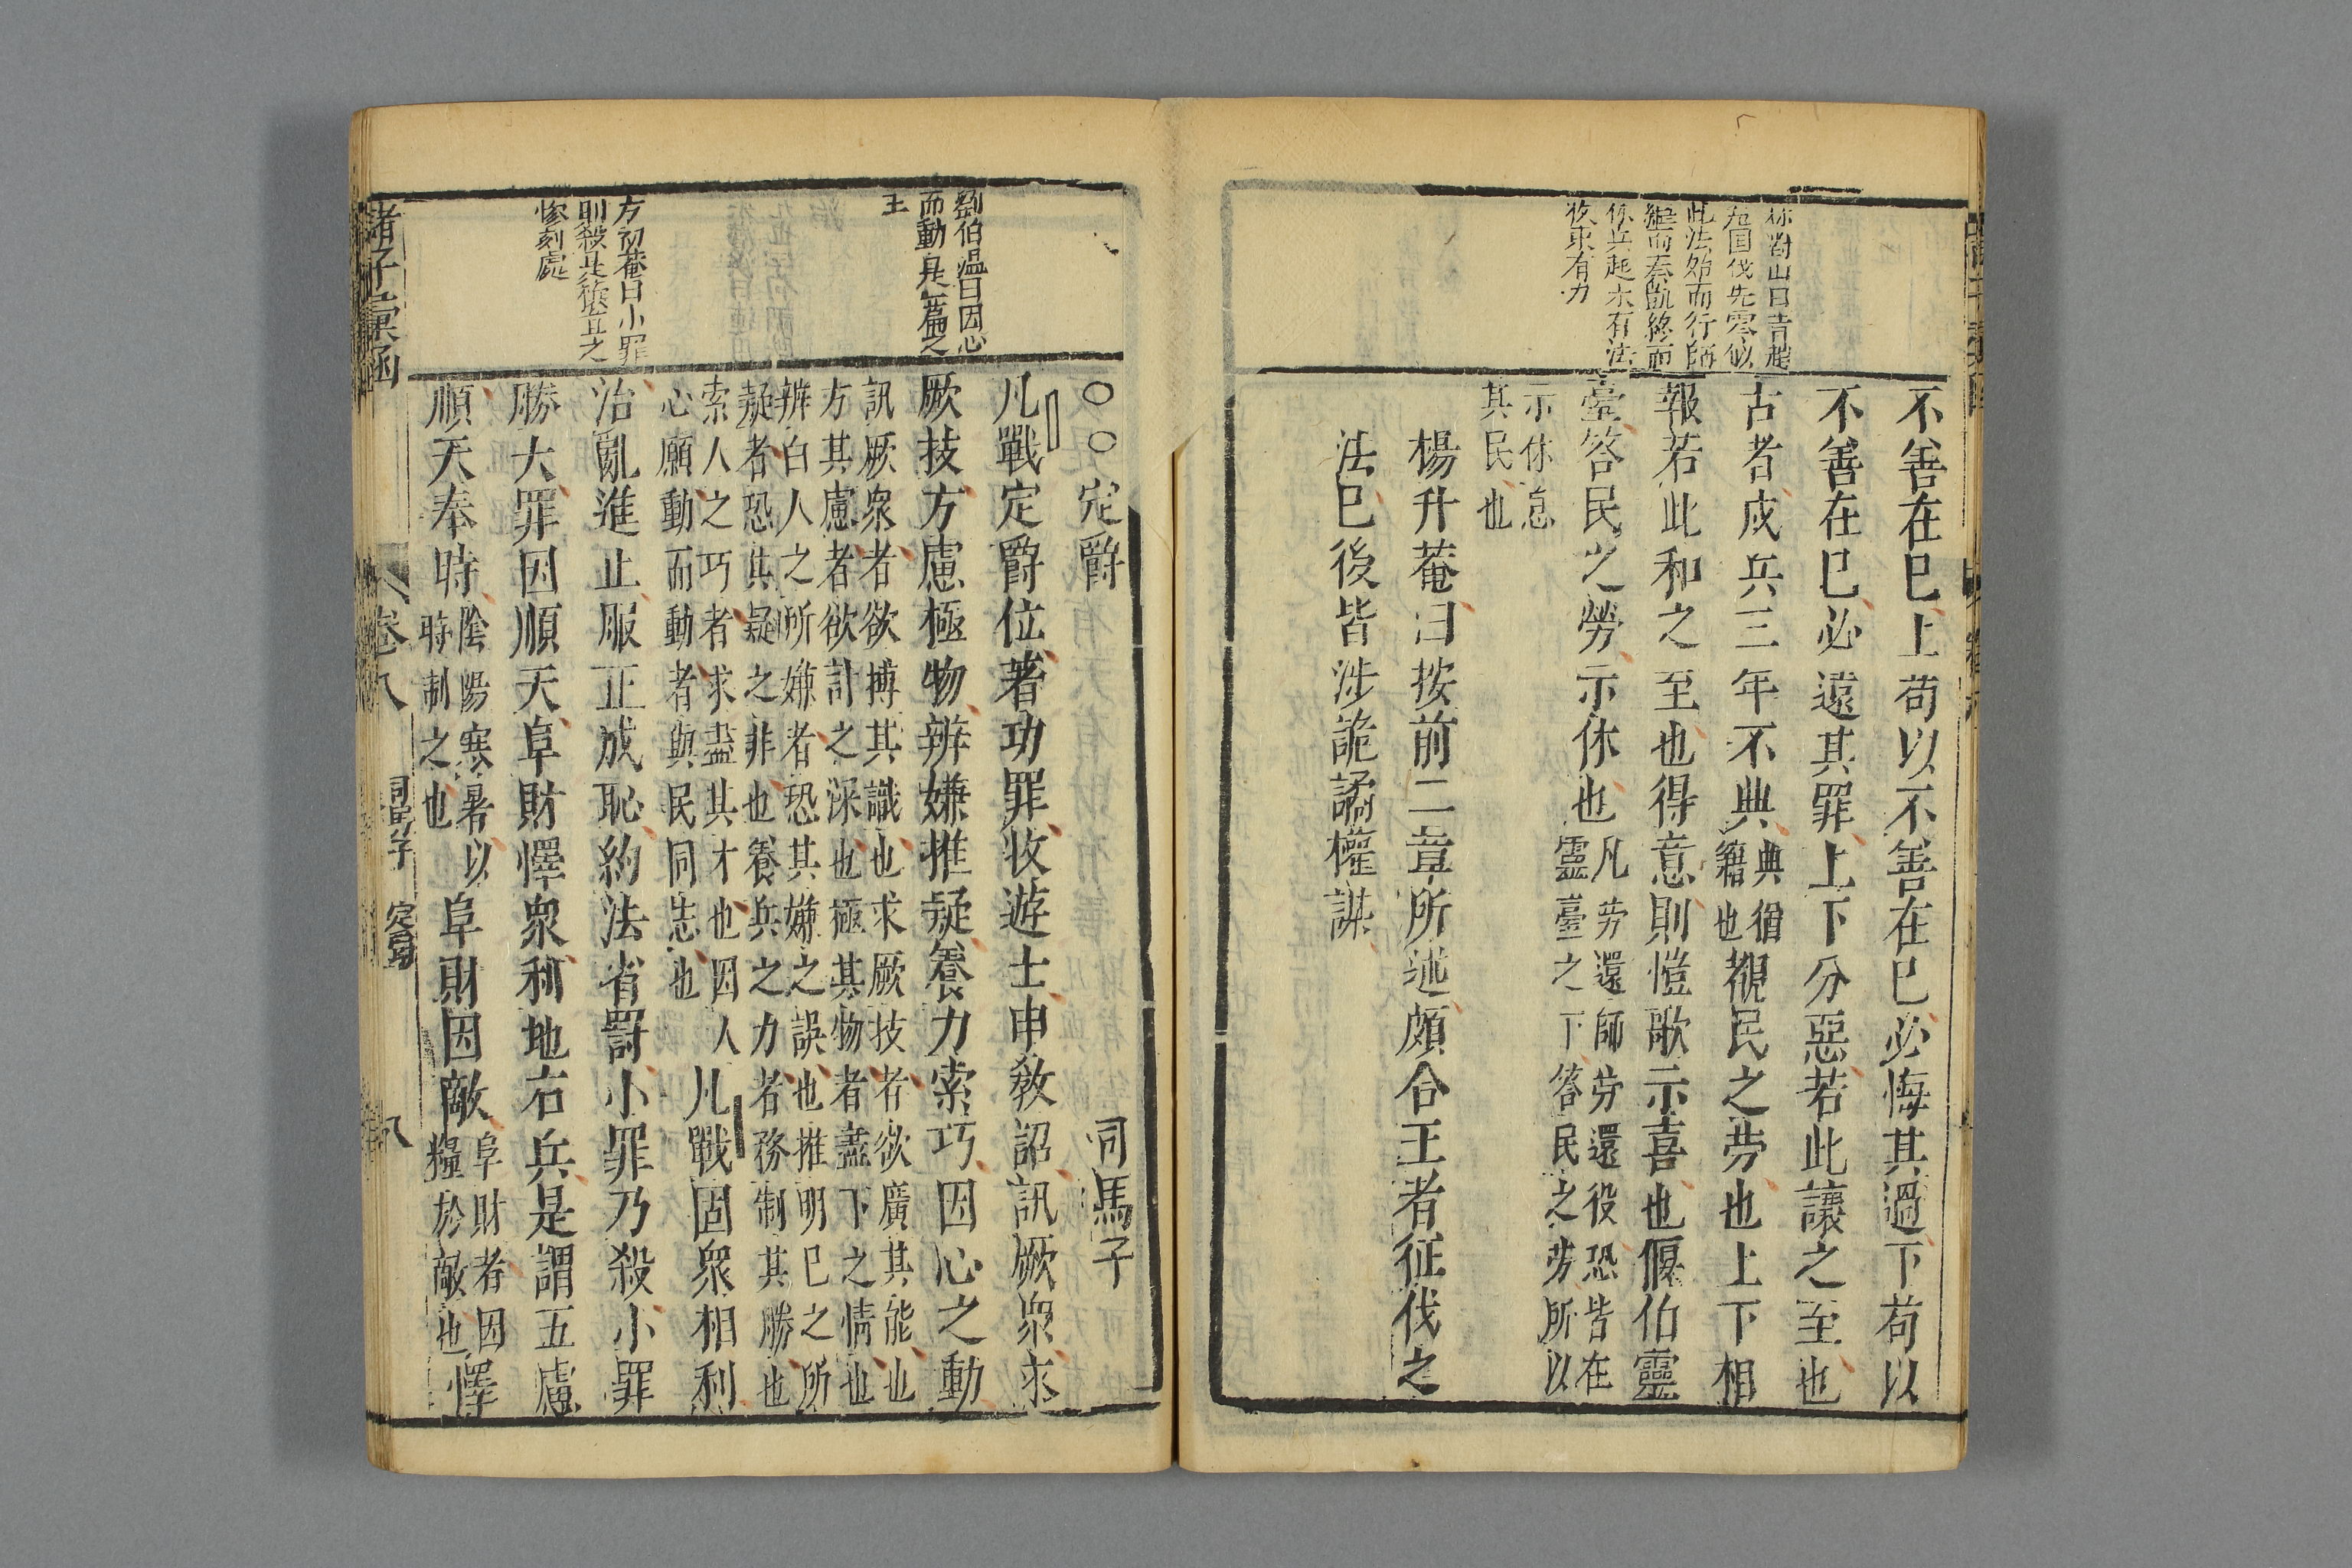 不善在已上苟以不善在已必悔其過下苟以
不善在已必遠其罪上下分惡若此讓之至也
古者戍兵三年不典典
籍也
猶
覩民之勞也上下相
報若此和之至也得意則愷歌示喜也偃伯靈
臺答民之勞示休也
凡勞還師勞還役恐皆在
靈臺之下答民之勞所以
示休息
其民也
楊升菴曰按前二章所述頗合王者征伐之
法已後皆涉詭譎權謀
○○定爵
司馬子
劉伯溫曰因心
而動是一篇之
王
凡戰定爵位著功罪收遊士申敎詔訊厥衆求
厥技方慮極物辨嫌推疑養力索巧因心之動
訊厥衆者欲搏其識也求厥技者欲廣其能也
方其慮者欲計之深也極其物者盡下之情也
辨白人之所嫌者恐其嫌之誤也推明巳之所
疑者恐其疑之非也養兵之力者務制其勝也
索人之巧者求盡其才也因人
心願動而動者與民同志也
凡戰固衆相利
方初菴曰小罪
則殺是穰苴之
慘刻處
治亂進止服正成恥約法省罰小罪乃殺小罪
勝大罪因順天阜財懌衆利地右兵是謂五慮
順天奉時
陰陽寒暑以
時制之也
阜財因敵
阜財者因
糧於敵也
懌
諸子彙函
卷八
司馬子
定爵
八